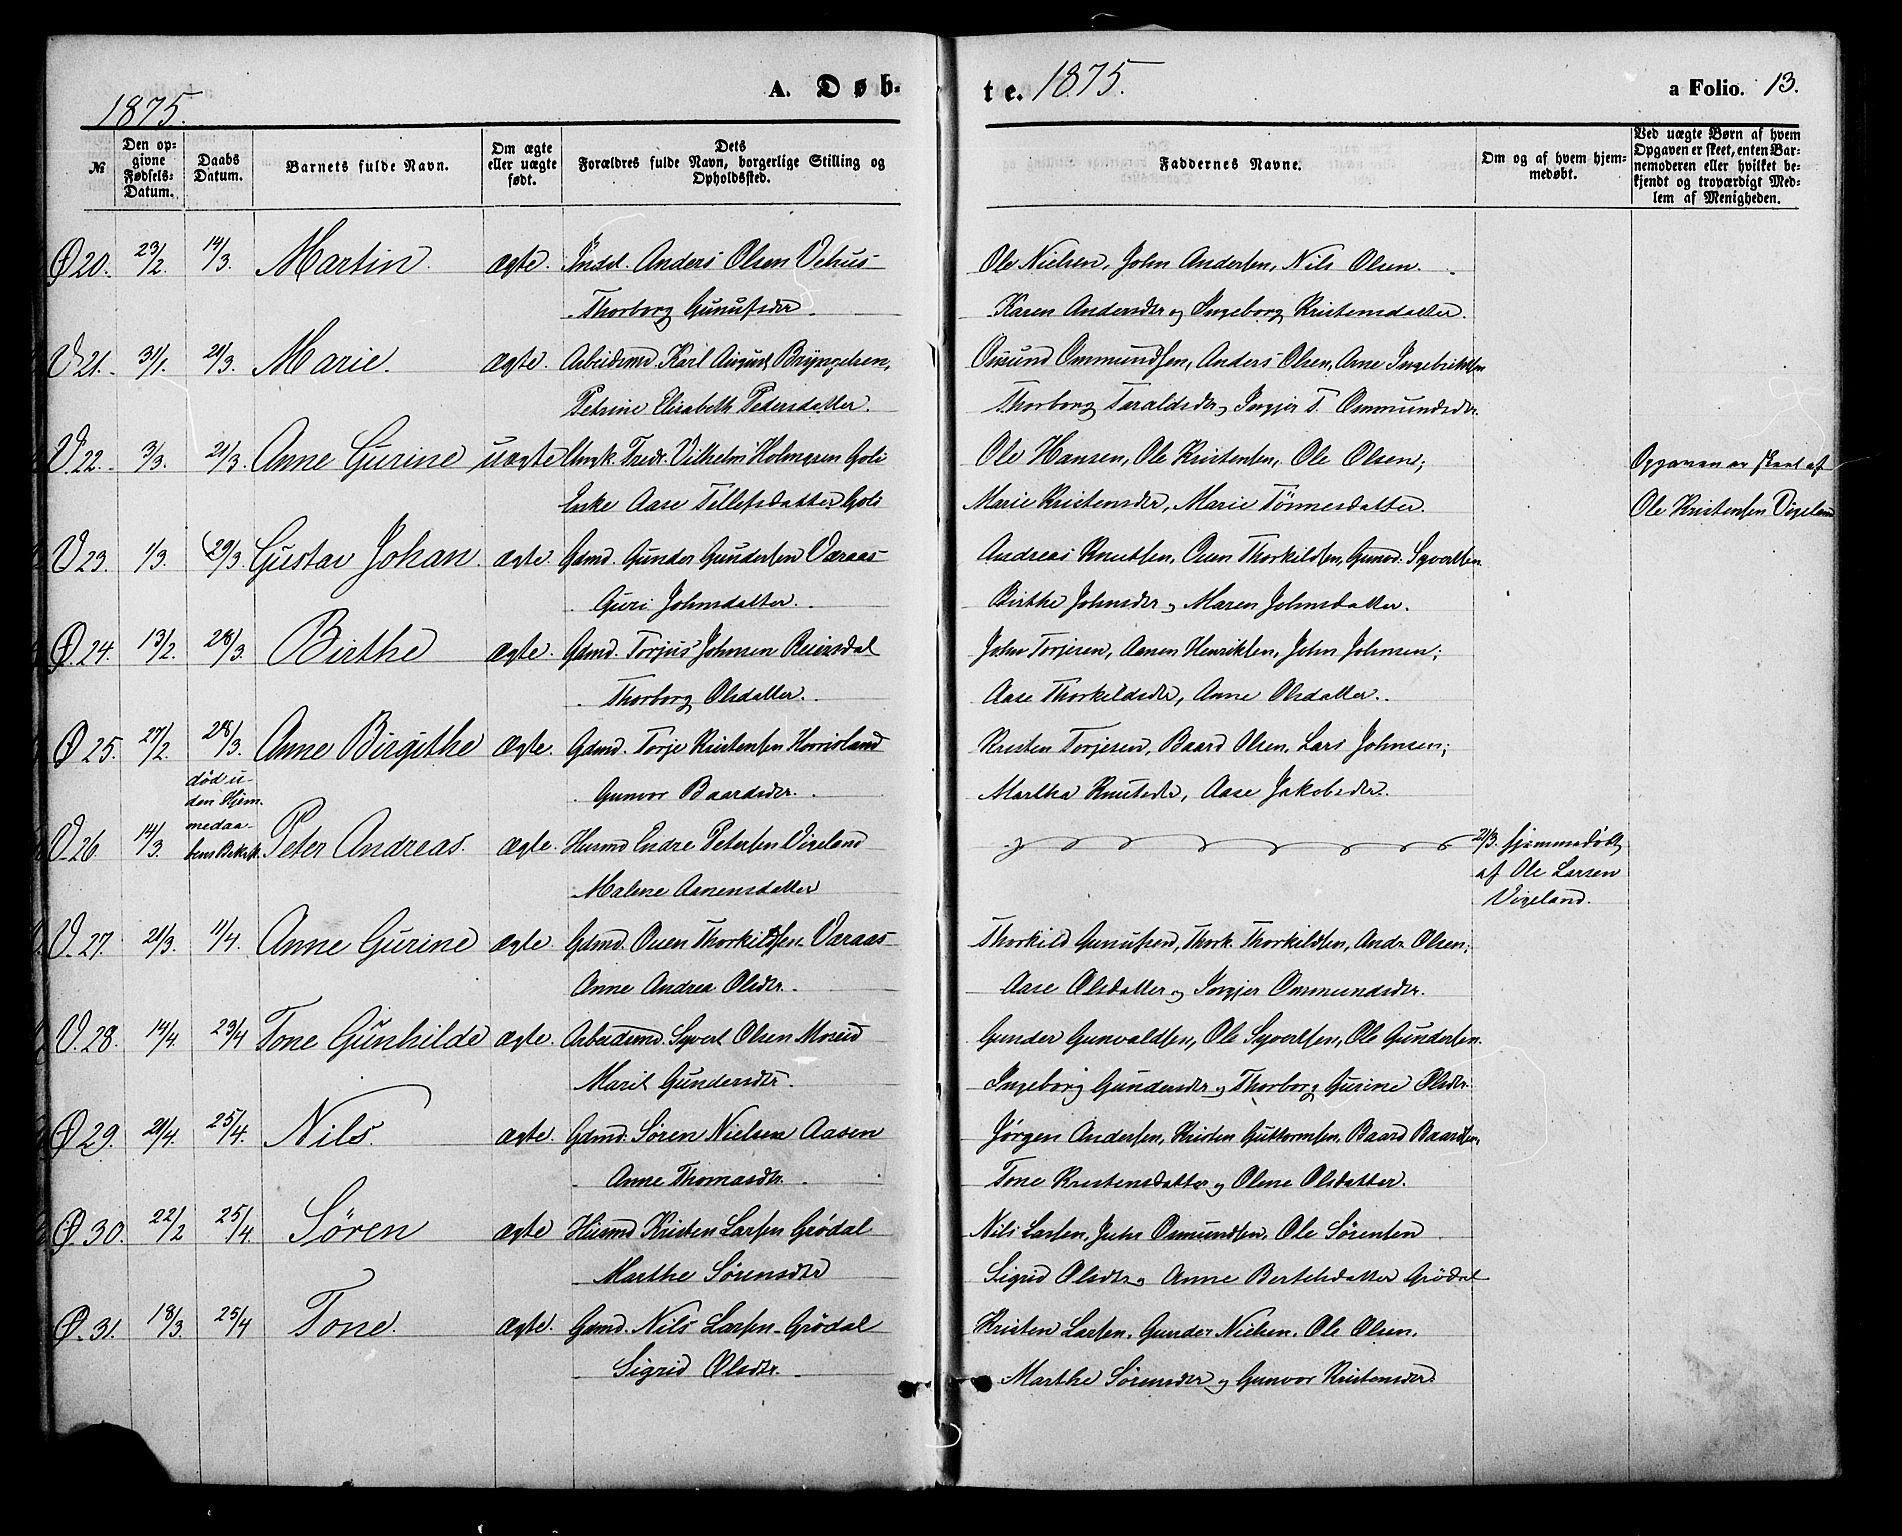 1875.
A. Døb-
te. 1875.
a Folio. 13.
№
Den op-
givne
Fødsels-
Datum.
Daabs
Datum.
Barnets fulde Navn.
Om ægte
eller uægte
født.
Dets
Forældres fulde Navn, borgerlige Stilling og
Opholdssted.
Faddernes Navne.
Om og af hvem hjem-
medøbt.
Ved uægte Børn af hvem
Opgaven er skeet, enten Bar-
nemoderen eller hvilket be-
kjendt og troværdigt Med-
lem af Menigheden.
Ø 20. 23/2. 14/3. Martin. ægte. Indst. Anders Olsen Vehus Ole Nielsen, John Andersen, Nils Olsen.
Thorborg Gunufsdr. Karen Andersdr og Ingeborg Kristensdatter.
V 21. 31/1. 21/3. Marie. ægte. Arbeidsmd. Karl August Bryngelsen, Osmund Ommundsen, Anders Olsen, Arne Ingebriktsen
Petrine Elisabeth Pedersdatter. Thorborg Taraldsdr og Ingjer T. Ommundsdr.
V 22. 3/3. 21/3. Anne Gurine uægte Ungk. Fredr. Vilhelm Holmgren Goli Ole Hansen, Ole Kristensen, Ole Olsen; Opgaven er skeet af
Enke Aase Tellefsdatter Goli Marie Kristensdr, Marie Tönnesdatter. Ole Kristensen Vigeland
V 23. 1/3. 29/3. Gustav Johan. ægte. Gdmd. Gunder Gundersen Væraas Andreas Knutsen, Ouen Thorkildsen, Gund. Syvertsen.
Guri Johnsdatter. Birthe Johnsdr og Maren Johnsdatter.
Ø. 24. 13/2. 28/3. Birthe ægte. Gdmd. Torjus Johnsen Reiersdal John Torjesen, Aanen Henriksen, John Johnsen;
Thorborg Olsdatter. Aase Thorkildsdr, Anne Olsdatter.
Ø 25. 27/2. 28/3. Anne Birgithe ægte. Gdmd. Torje Kristensen Hornsland Kristen Torjesen, Baard Olsen, Lars Johnsen;
Gunvor Baardsdr. Martha Knutsdr, Aase Jakobsdr.
død u-
den Hjem-
medaa-
bens Bekræft.
V. 26 14/3. Peter Andreas. ægte. Husmd Endre Petersen Vigeland 21/3. hjemmedøbt
af Ole Larsen
Malene Aanensdatter Vigeland.
V. 27. 21/3. 11/4. Anne Gurine ægte Gdmd. Ouen Thorkildsen Væraas Thorkild Gunufsen, Thork. Thorkildsen, Andr. Olsen;
Anne Andrea Olsdr. Aase Olsdatter og Ingjer Ommundsdr.
V. 28. 14/4. 23/4 Tone Gunhilde ægte. Arbeidsmd. Syvert Olsen Moseid Gunder Gunvaldsen, Ole Syvertsen, Ole Gundersen.
Marit Gundersdr. Ingeborg Gundersdr og Thorborg Gurine Olsdr.
Ø 29. 21/4. 25/4. Nils. ægte. Gdmd. Sören Nielsen Aasen Jörgen Andersen, Kristen Guttormsen, Baard Baardsen,
Anne Thomasdr. Tone Kristensdatter og Olene Olsdatter.
Ø. 30. 22/2 25/4. Sören ægte Husmd Kristen Larsen Grödal Nils Larsen, Juhr Osmundsen, Ole Sörensen
Marthe Sörensdr Sigrid Olsdr og Anne Bertelsdatter Grödal
Ø. 31. 18/3. 25/4 Tone. ægte. Gdmd. Nils Larsen Grödal Kristen Larsen, Gunder Nielsen, Ole Olsen,
Sigrid Olsdr. Marthe Sörensdr og Gunvor Kristensdr.